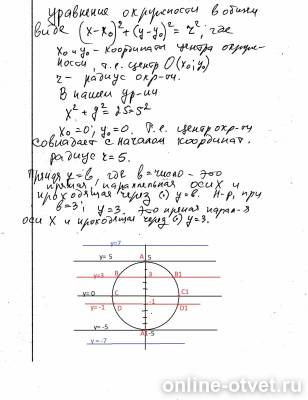 уравнение окружности в общем
виде (x-x₀)²+(y-y₀)²=r², где
x₀ и y₀ - координаты центра окруж-
ности, т.е. центр O(x₀; y₀)
r - радиус окр-ти.
В нашем ур-ии
x²+y²=25=5²
x₀=0; y₀=0. Т.е. центр окр-ти
совпадает с началом координат.
радиус r=5.
Прямая y=b, где b=число - это
прямая, параллельная оси X и
проходящая через (·) y=b. Н-р, при
b=3; y=3. это прямая парал-я
оси X и проходящая через (·) y=3.
y=7
y= 5 A 5
y=3 B 3 B1
y= 0 C C1
y= -1 D -1 D1
y= -5 A1-5
y= -7
online-otvet.ru